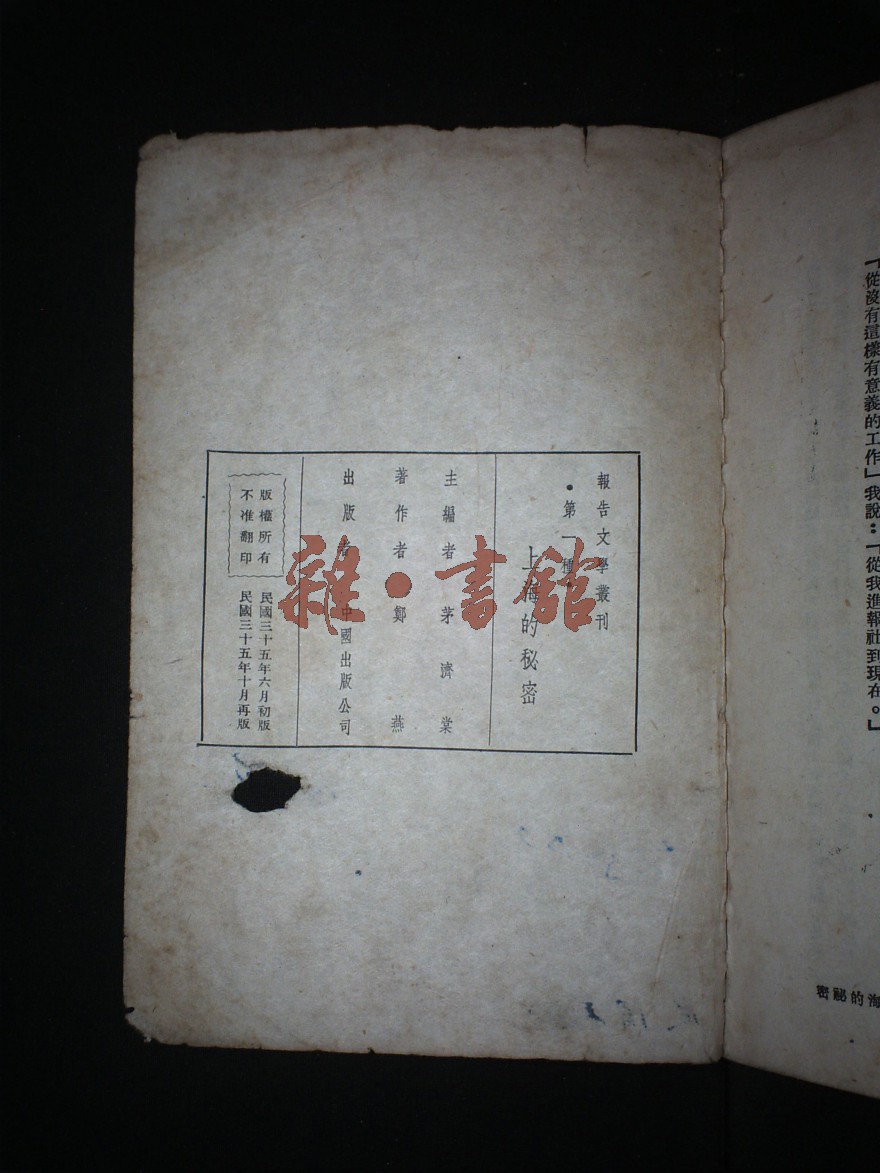 「從沒有這樣有意義的工作」我說:「從我進報社到現在。」
海的祕密
報告文學叢刊
•第一種•
上海的秘密
主編者 茅濟棠
著作者 鄭燕
出版者 中國出版公司
版權所有
不准翻印
民國三十五年六月初版
民國三十五年十月再版
雜·書館